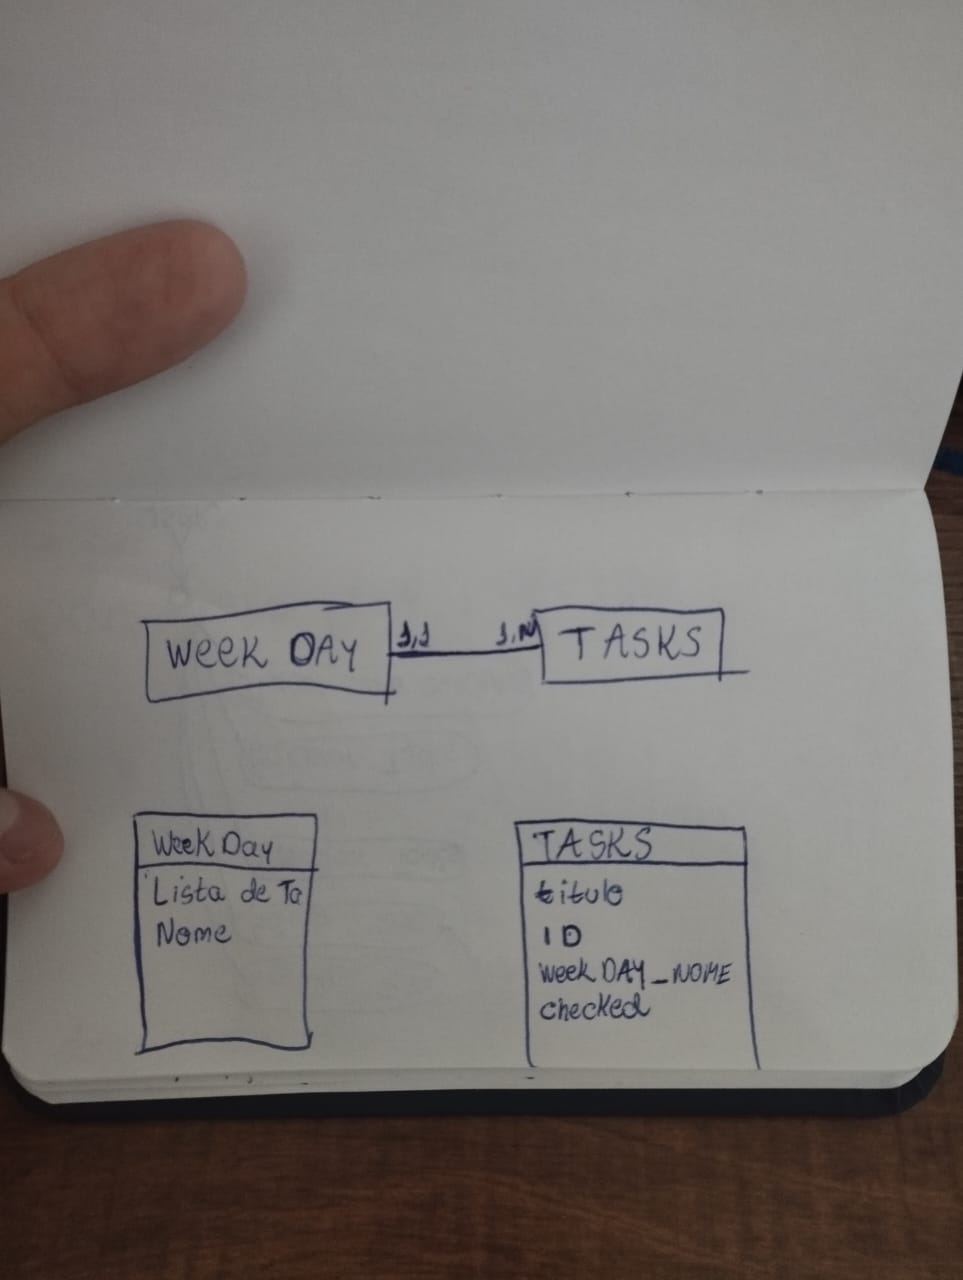 Week DAY
1,1
1,N
TASKS
Week Day
Lista de Ta
Nome
TASKS
titulo
ID
week DAY_NOME
checked